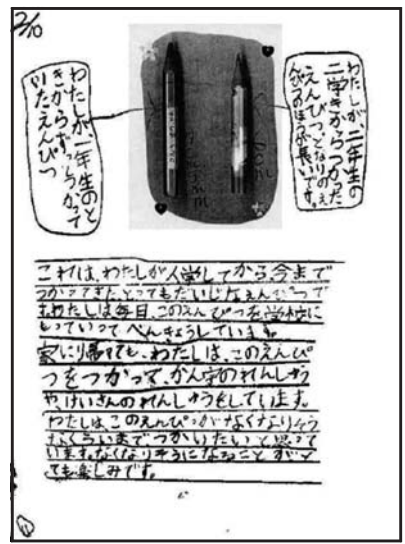 2/10
わたしが、二年生の
二学きからつかった
えんぴつ。となりのえ
んぴつのほうが長いです。
わたしが一年生のと
きからずっとつかって
いたえんぴつ
これは、わたしが入学してから、今まで
つかってきた、とってもだいじなえんぴつで
す。わたしは毎日、このえんぴつを学校に
もっていって、べんきょうしています。
家に帰っても、わたしは、このえんぴ
つをつかって、かん字のれんしゅう
や、けいさんのれんしゅうをしています。
わたしは、このえんぴつがなくなりそう
なくらいまでつかいたいと思って
います。なくなりそうになることがと
ても楽しみです。